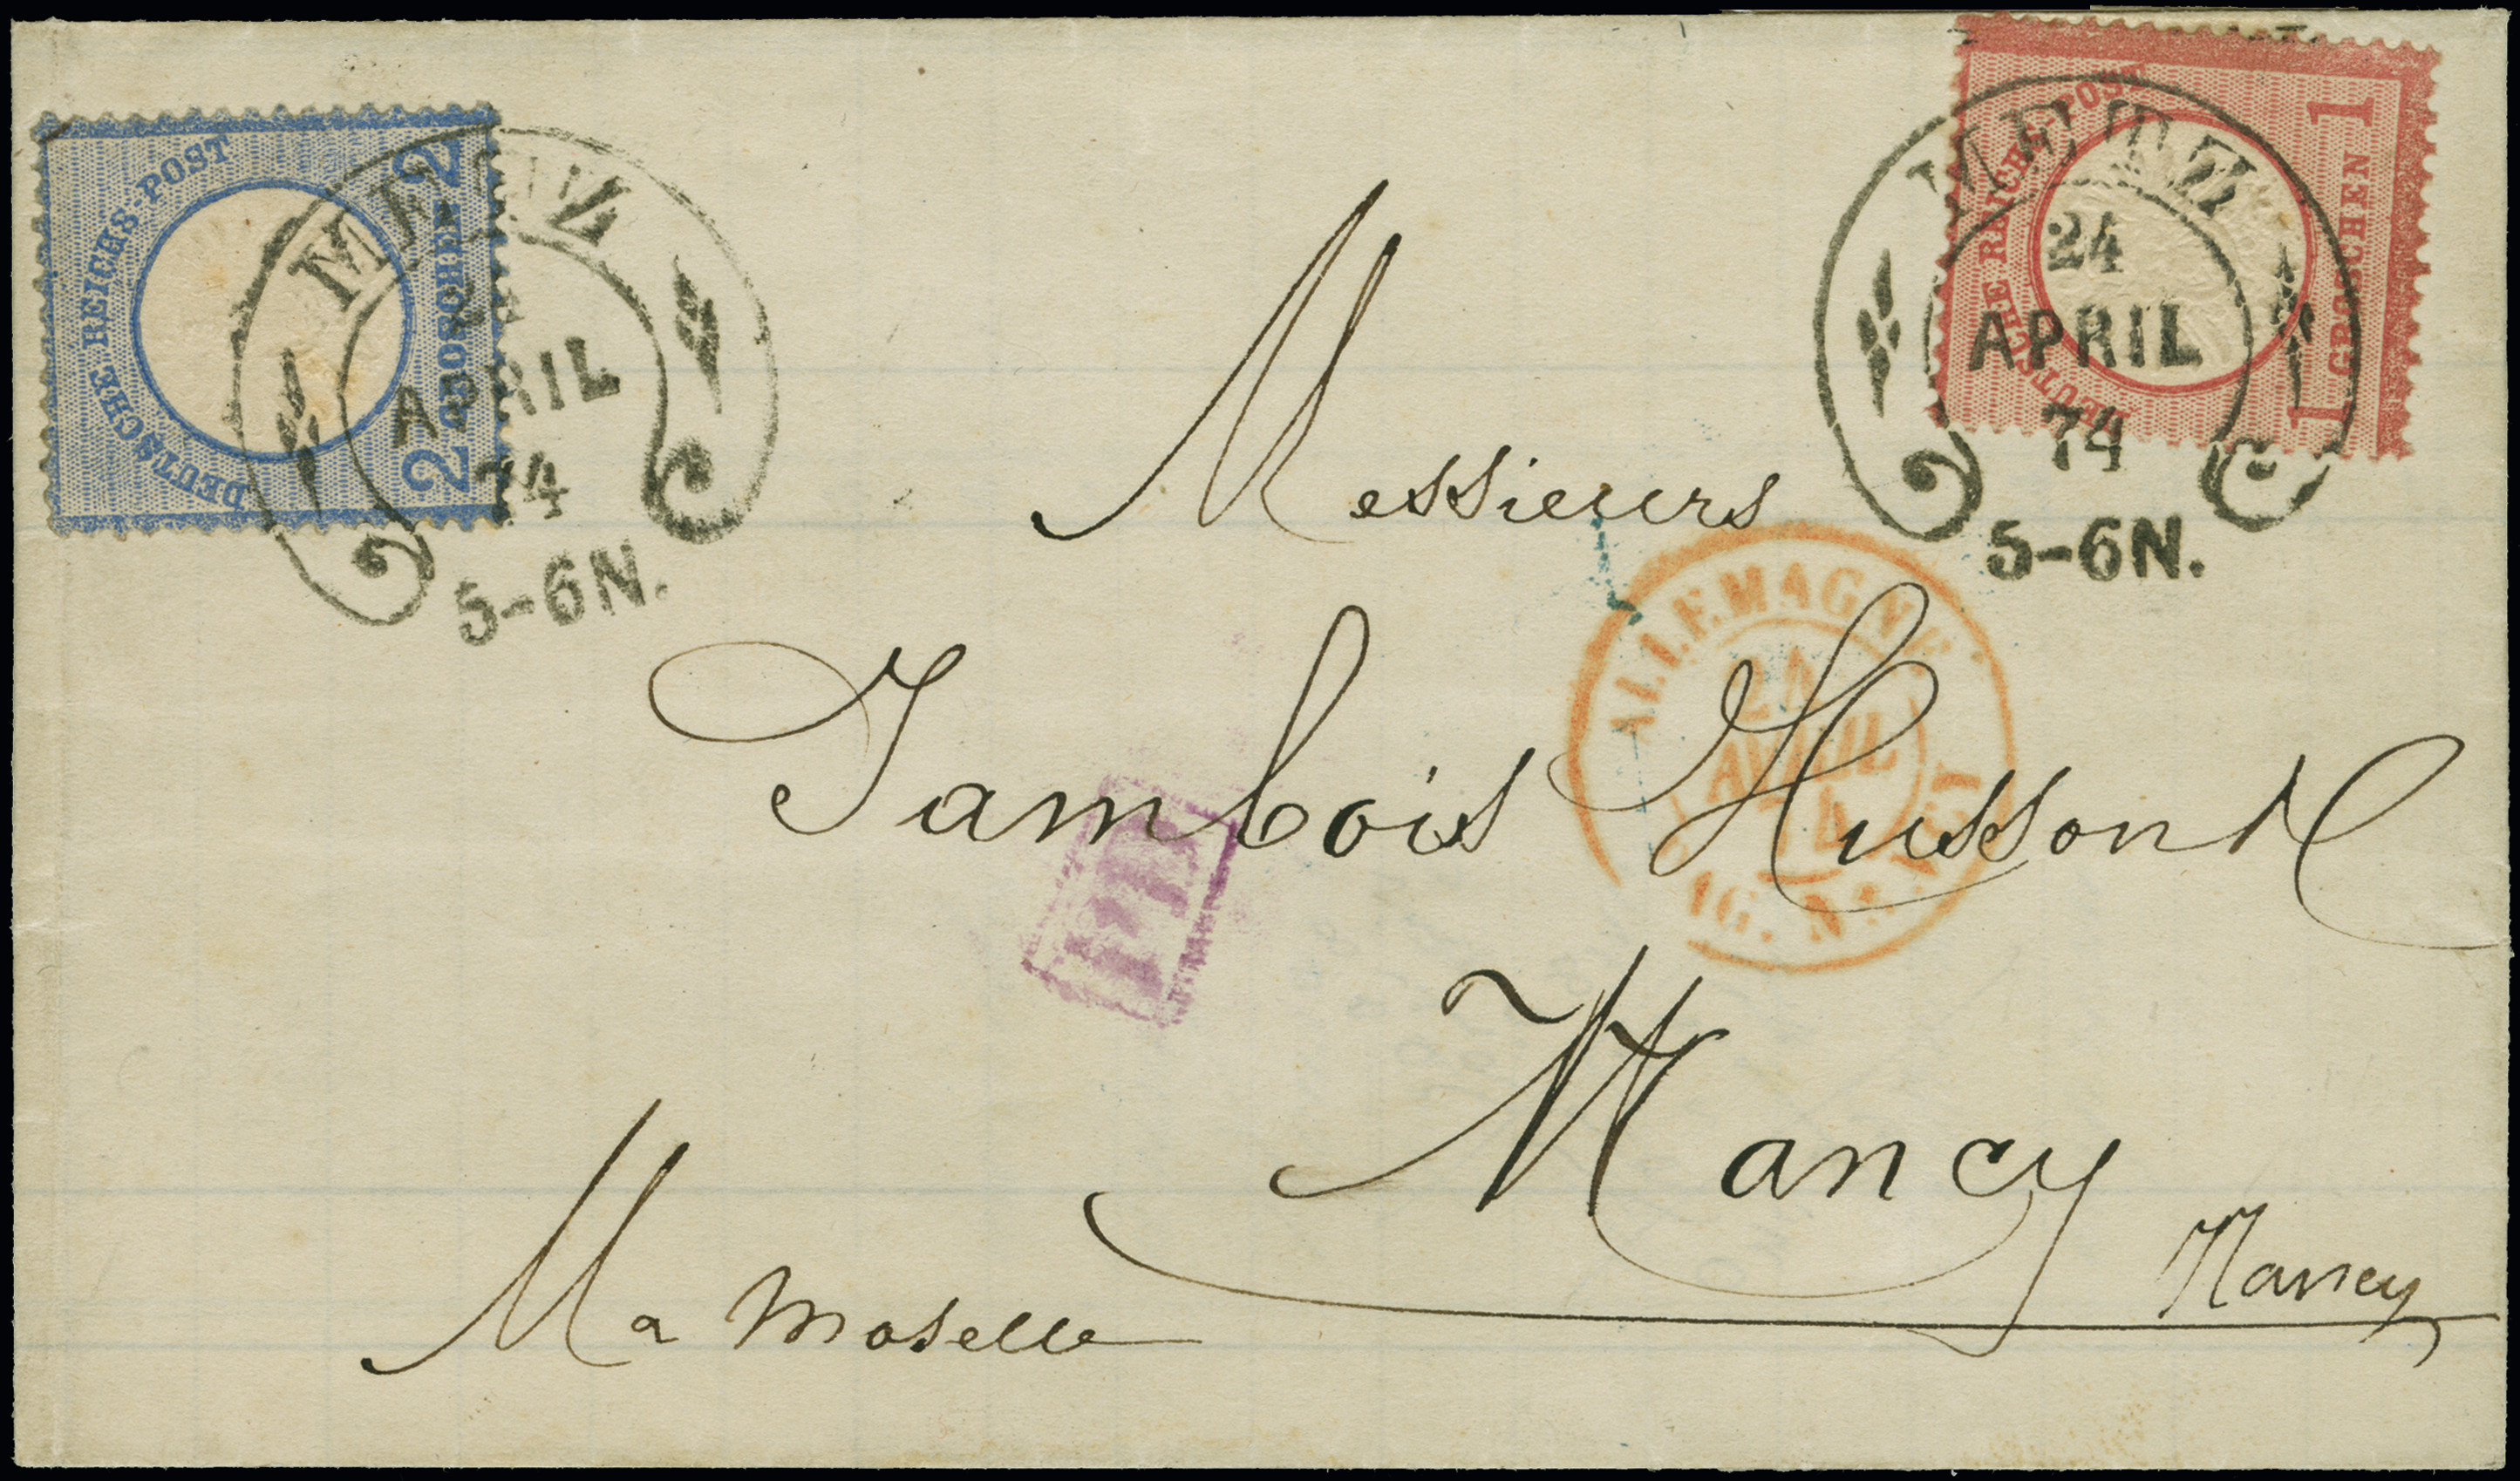 DEUTSCHE REICHS-POST
2 GROSCHEN 2
METZ
24
APRIL
74
5-6N.
DEUTSCHE REICHS-POST
1 GROSCHEN 1
METZ
24
APRIL
74
5-6N.
Messieurs
ALLEMAGNE
24
AVRIL
74
Jambois Husson &
PD
Nancy
Nancy
Mthe Moselle